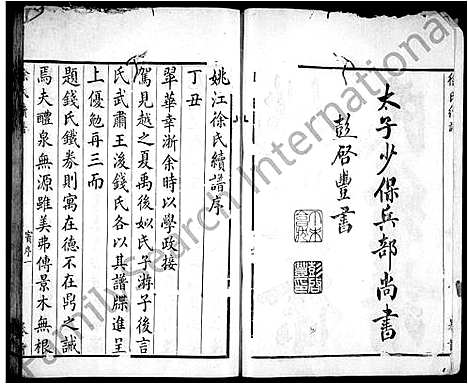 太子少保兵部尚書
彭啓豐書
姚江徐氏續譜序
丁丑
翠華幸浙余時以學政接
駕見越之夏禹後姒氏子游子後言
氏武肅王後錢氏各以其譜牒進呈
上優勉再三而
題錢氏鐵券則寓在德不在鼎之誡
焉夫醴泉無源雖美弗傳景木無根
FamilySearch International